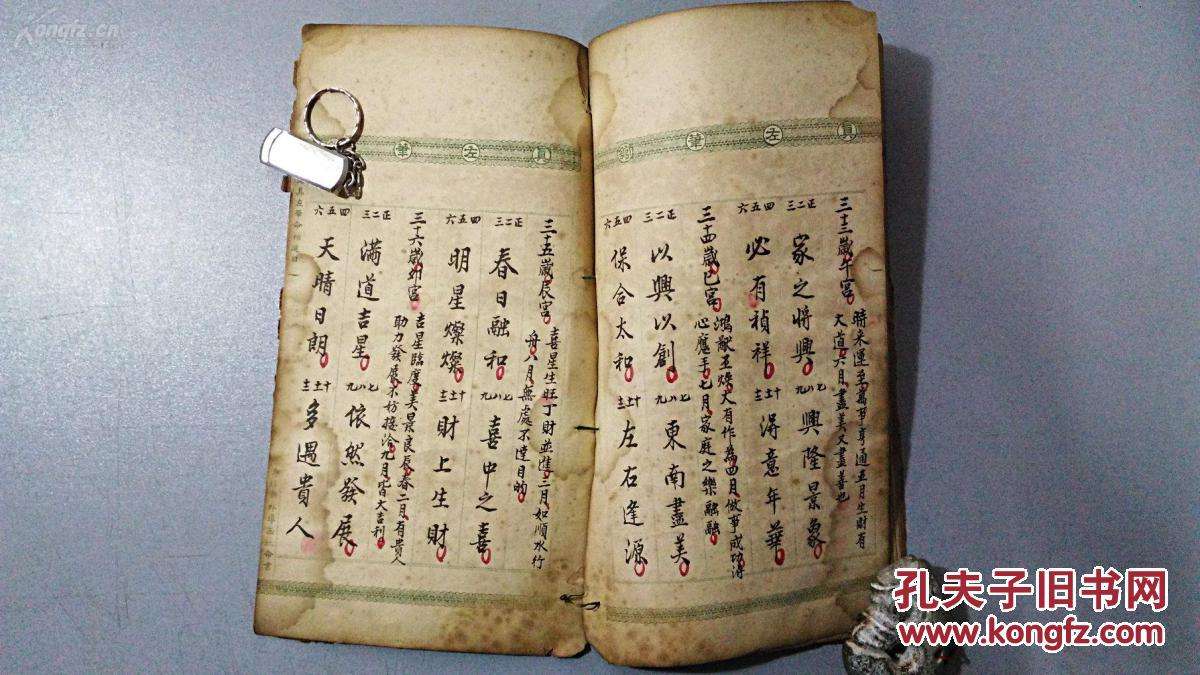 真左筆
三十三歲午宮
時來運至萬事亨通五月生財有
大道六月盡美又盡善也
正二三 家之將興 七八九 興隆景象
四五六 必有禎祥 十十一十二 得意年華
三十四歲巳宮
大有作為四月做事成功得
心應手七月家庭之樂融融
正二三 以興以創 七八九 東南盡美
四五六 保合太和 十十一十二 左右逢源
真左筆
三十五歲辰宮
喜星生旺丁財並進二月如順水行
舟八月無處不達目的
正二三 春日融和 七八九 喜中之喜
四五六 明星燦燦 十十一十二 財上生財
三十六歲卯宮
吉星臨度美景良辰春二月有貴人
助力發展不妨接洽九月皆大吉利
正二三 滿道吉星 七八九 依然發展
四五六 天晴日朗 十十一十二 多遇貴人
kongfz.cn
孔夫子旧书网
www.kongfz.com